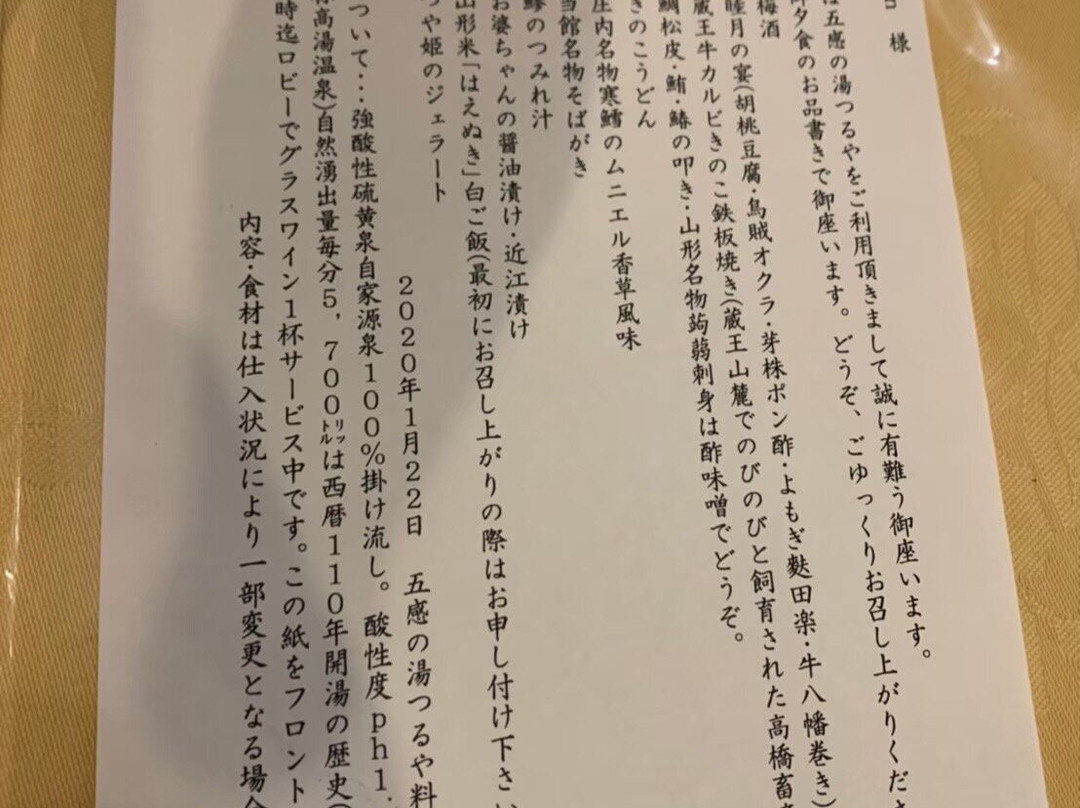 様
は五感の湯つるやをご利用頂きまして誠に有難う御座います。
夕食のお品書きで御座います。どうぞ、ごゆっくりお召し上がりくださ
梅酒
睦月の宴(胡桃豆腐・烏賊オクラ・芽株ポン酢・よもぎ麩田楽・牛八幡巻き)
蔵王牛カルビきのこ鉄板焼き(蔵王山麓でのびのびと飼育された高橋畜産
鯛松皮・鮪・鰆の叩き・山形名物蒟蒻刺身は酢味噌でどうぞ。
きのこうどん
庄内名物寒鱈のムニエル香草風味
当館名物そばがき
鯵のつみれ汁
お婆ちゃんの醤油漬け・近江漬け
山形米「はえぬき」白ご飯(最初にお召し上がりの際はお申し付け下さい
や姫のジェラート
2020年1月22日 五感の湯つるや料
ついて・・・強酸性硫黄泉自家源泉100%掛け流し。酸性度ph1.
高湯温泉)自然湧出量毎分5,700㍑は西暦110年開湯の歴史(
時迄ロビーでグラスワイン1杯サービス中です。この紙をフロント
内容・食材は仕入状況により一部変更となる場合